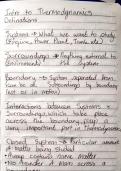 Intro to Thermodynamics
Definitions
Systems → What we want to study
(Engine, Power Plant, Tank, etc.)
Surroundings → Anything external to
Environments the System
Boundary → System separated from
Surroundings by boundary
Interactions between Systems &
Surroundings, which take place
across the boundary, play an
important part in Thermodynamics
Closed System → Particular amount
of matter being studied
• Always contains same matter
• No transfer of mass across a